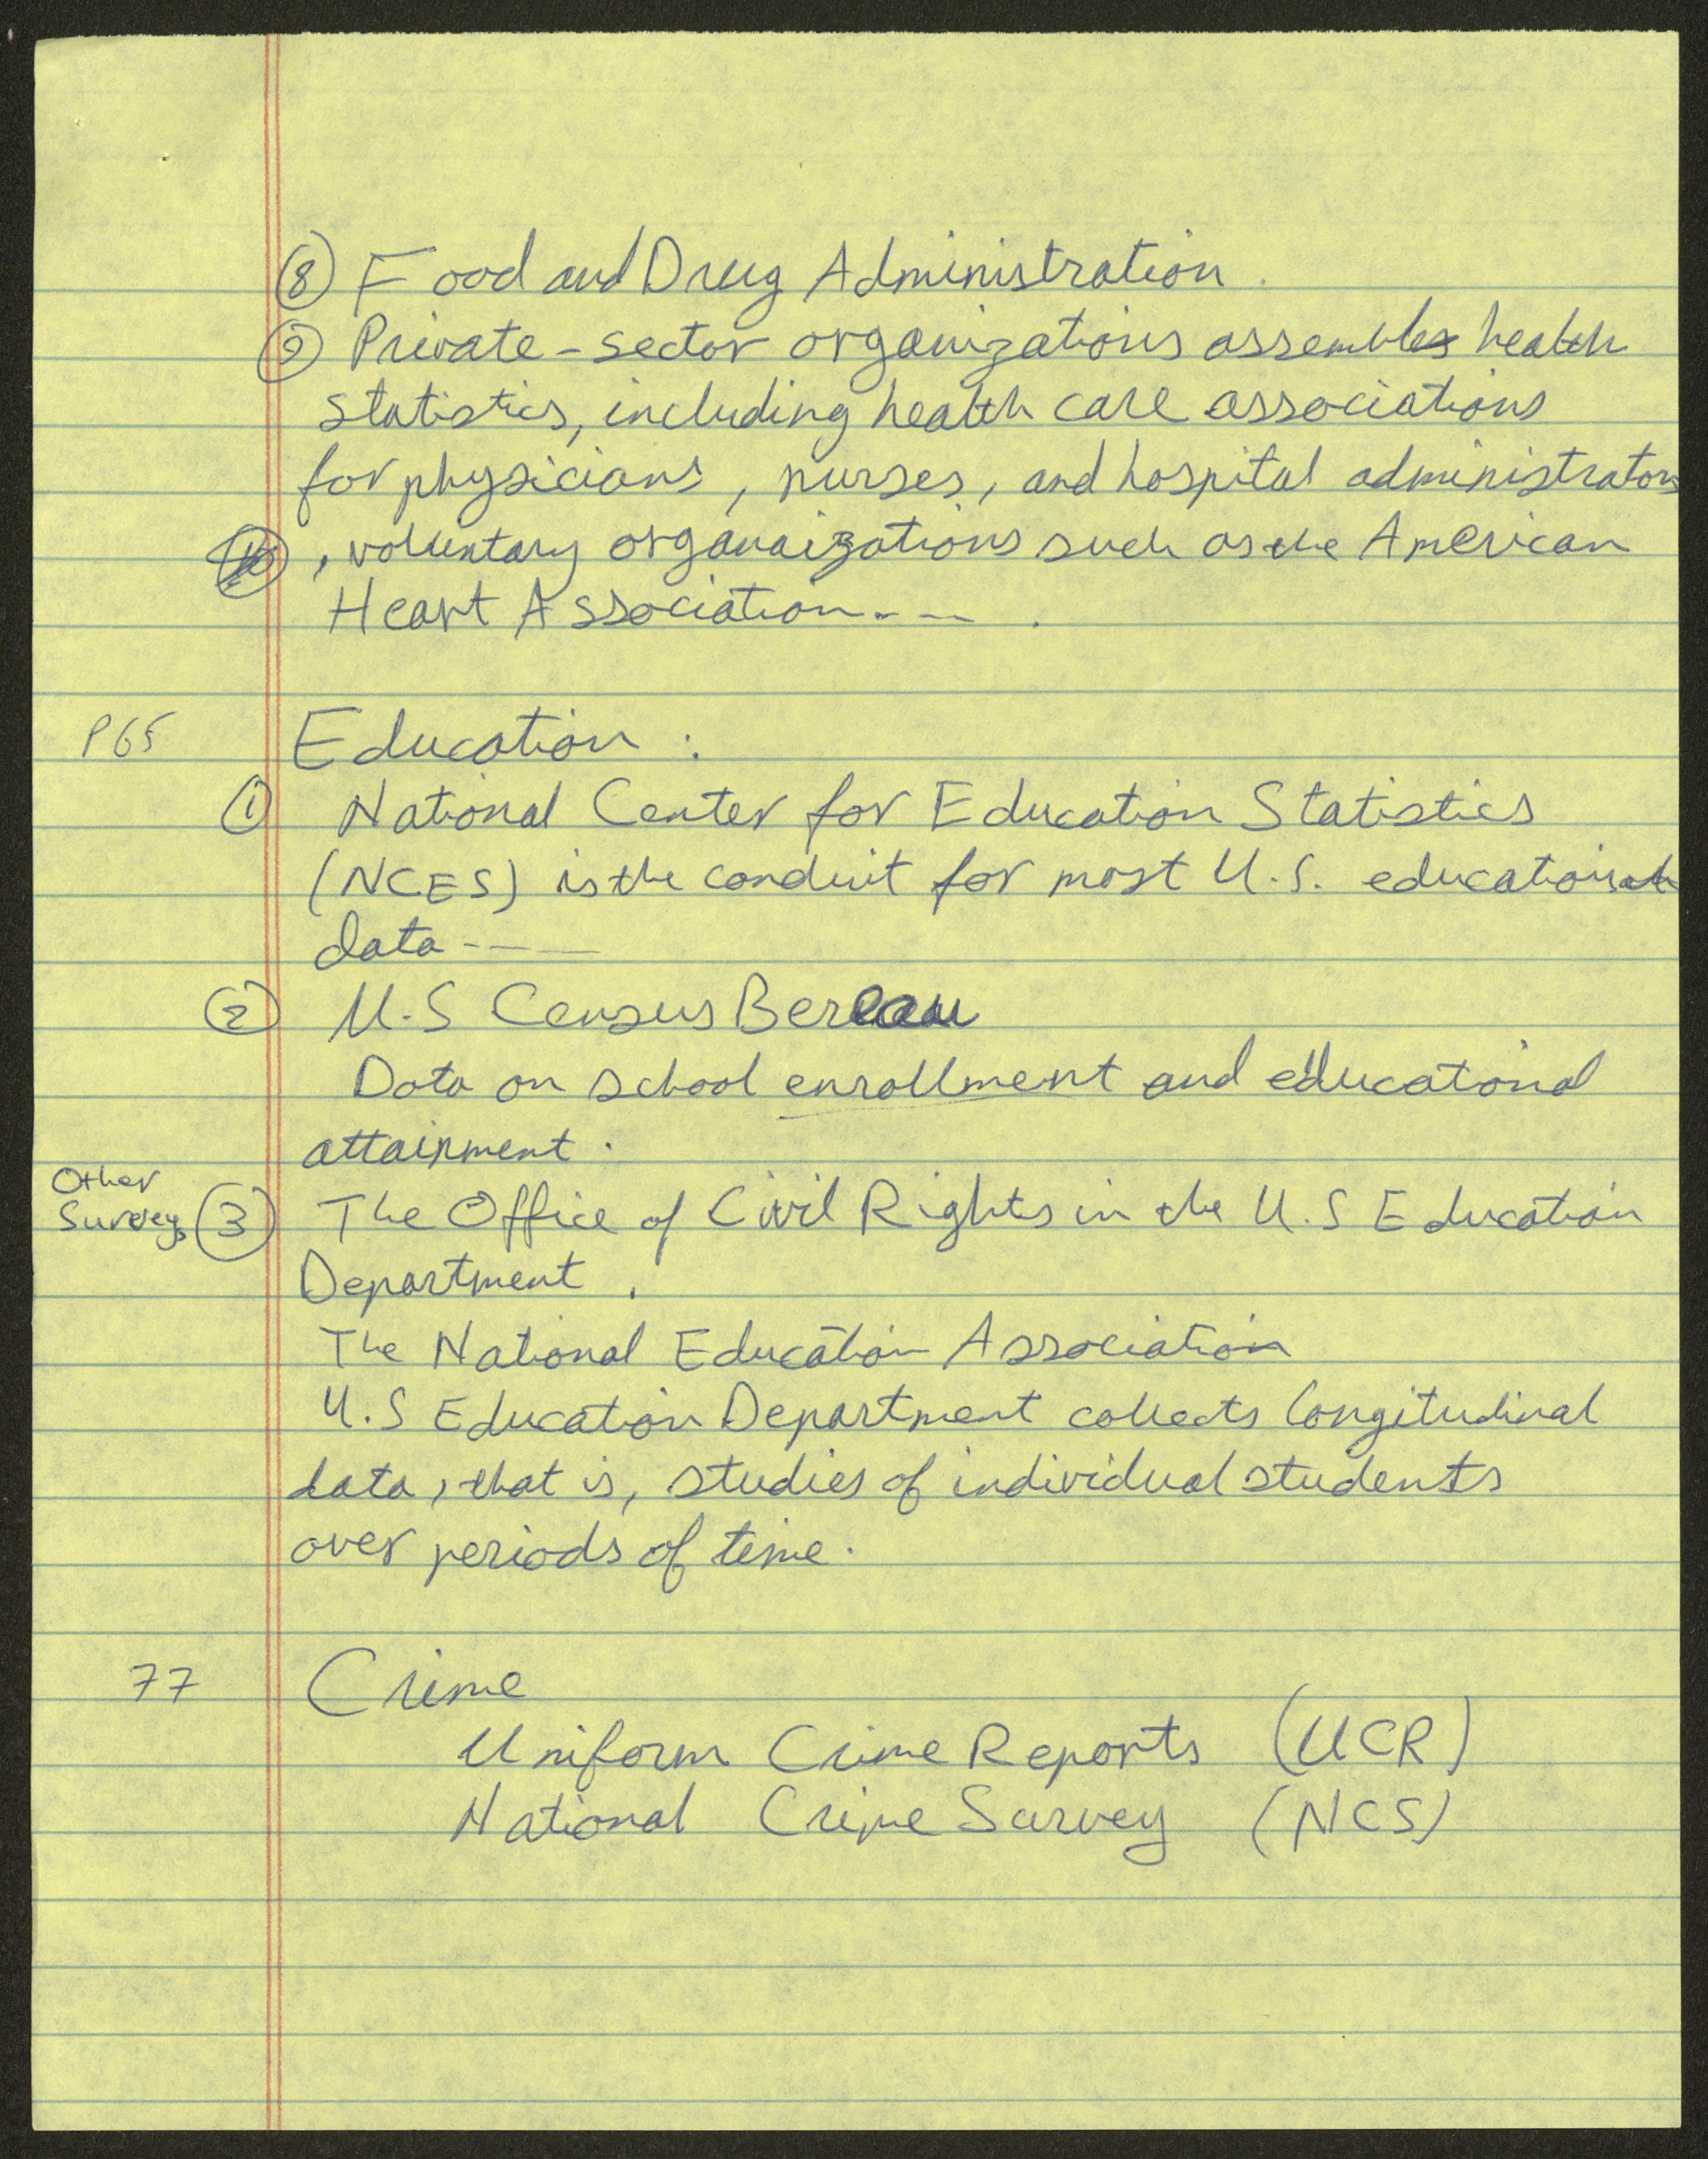 ⑧ Food and Drug Administration.
⑨ Private-sector organizations assembles health
statistics, including health care associations
for physicians, nurses, and hospital administrators
, voluntary organaizations such as the American
Heart Association---.
P65 Education:
① National Center for Education Statistics
(NCES) is the conduit for most U.S. educational
data----
② U.S Census Bereau
Data on school enrollment and educational
attainment.
Other
Surveys ③ The Office of Civil Rights in the U.S Education
Department.
The National Education Association
U.S Education Department collects longitudinal
data, that is, studies of individual students
over periods of time.
77 Crime
Uniform Crime Reports (UCR)
National Crime Survey (NCS)